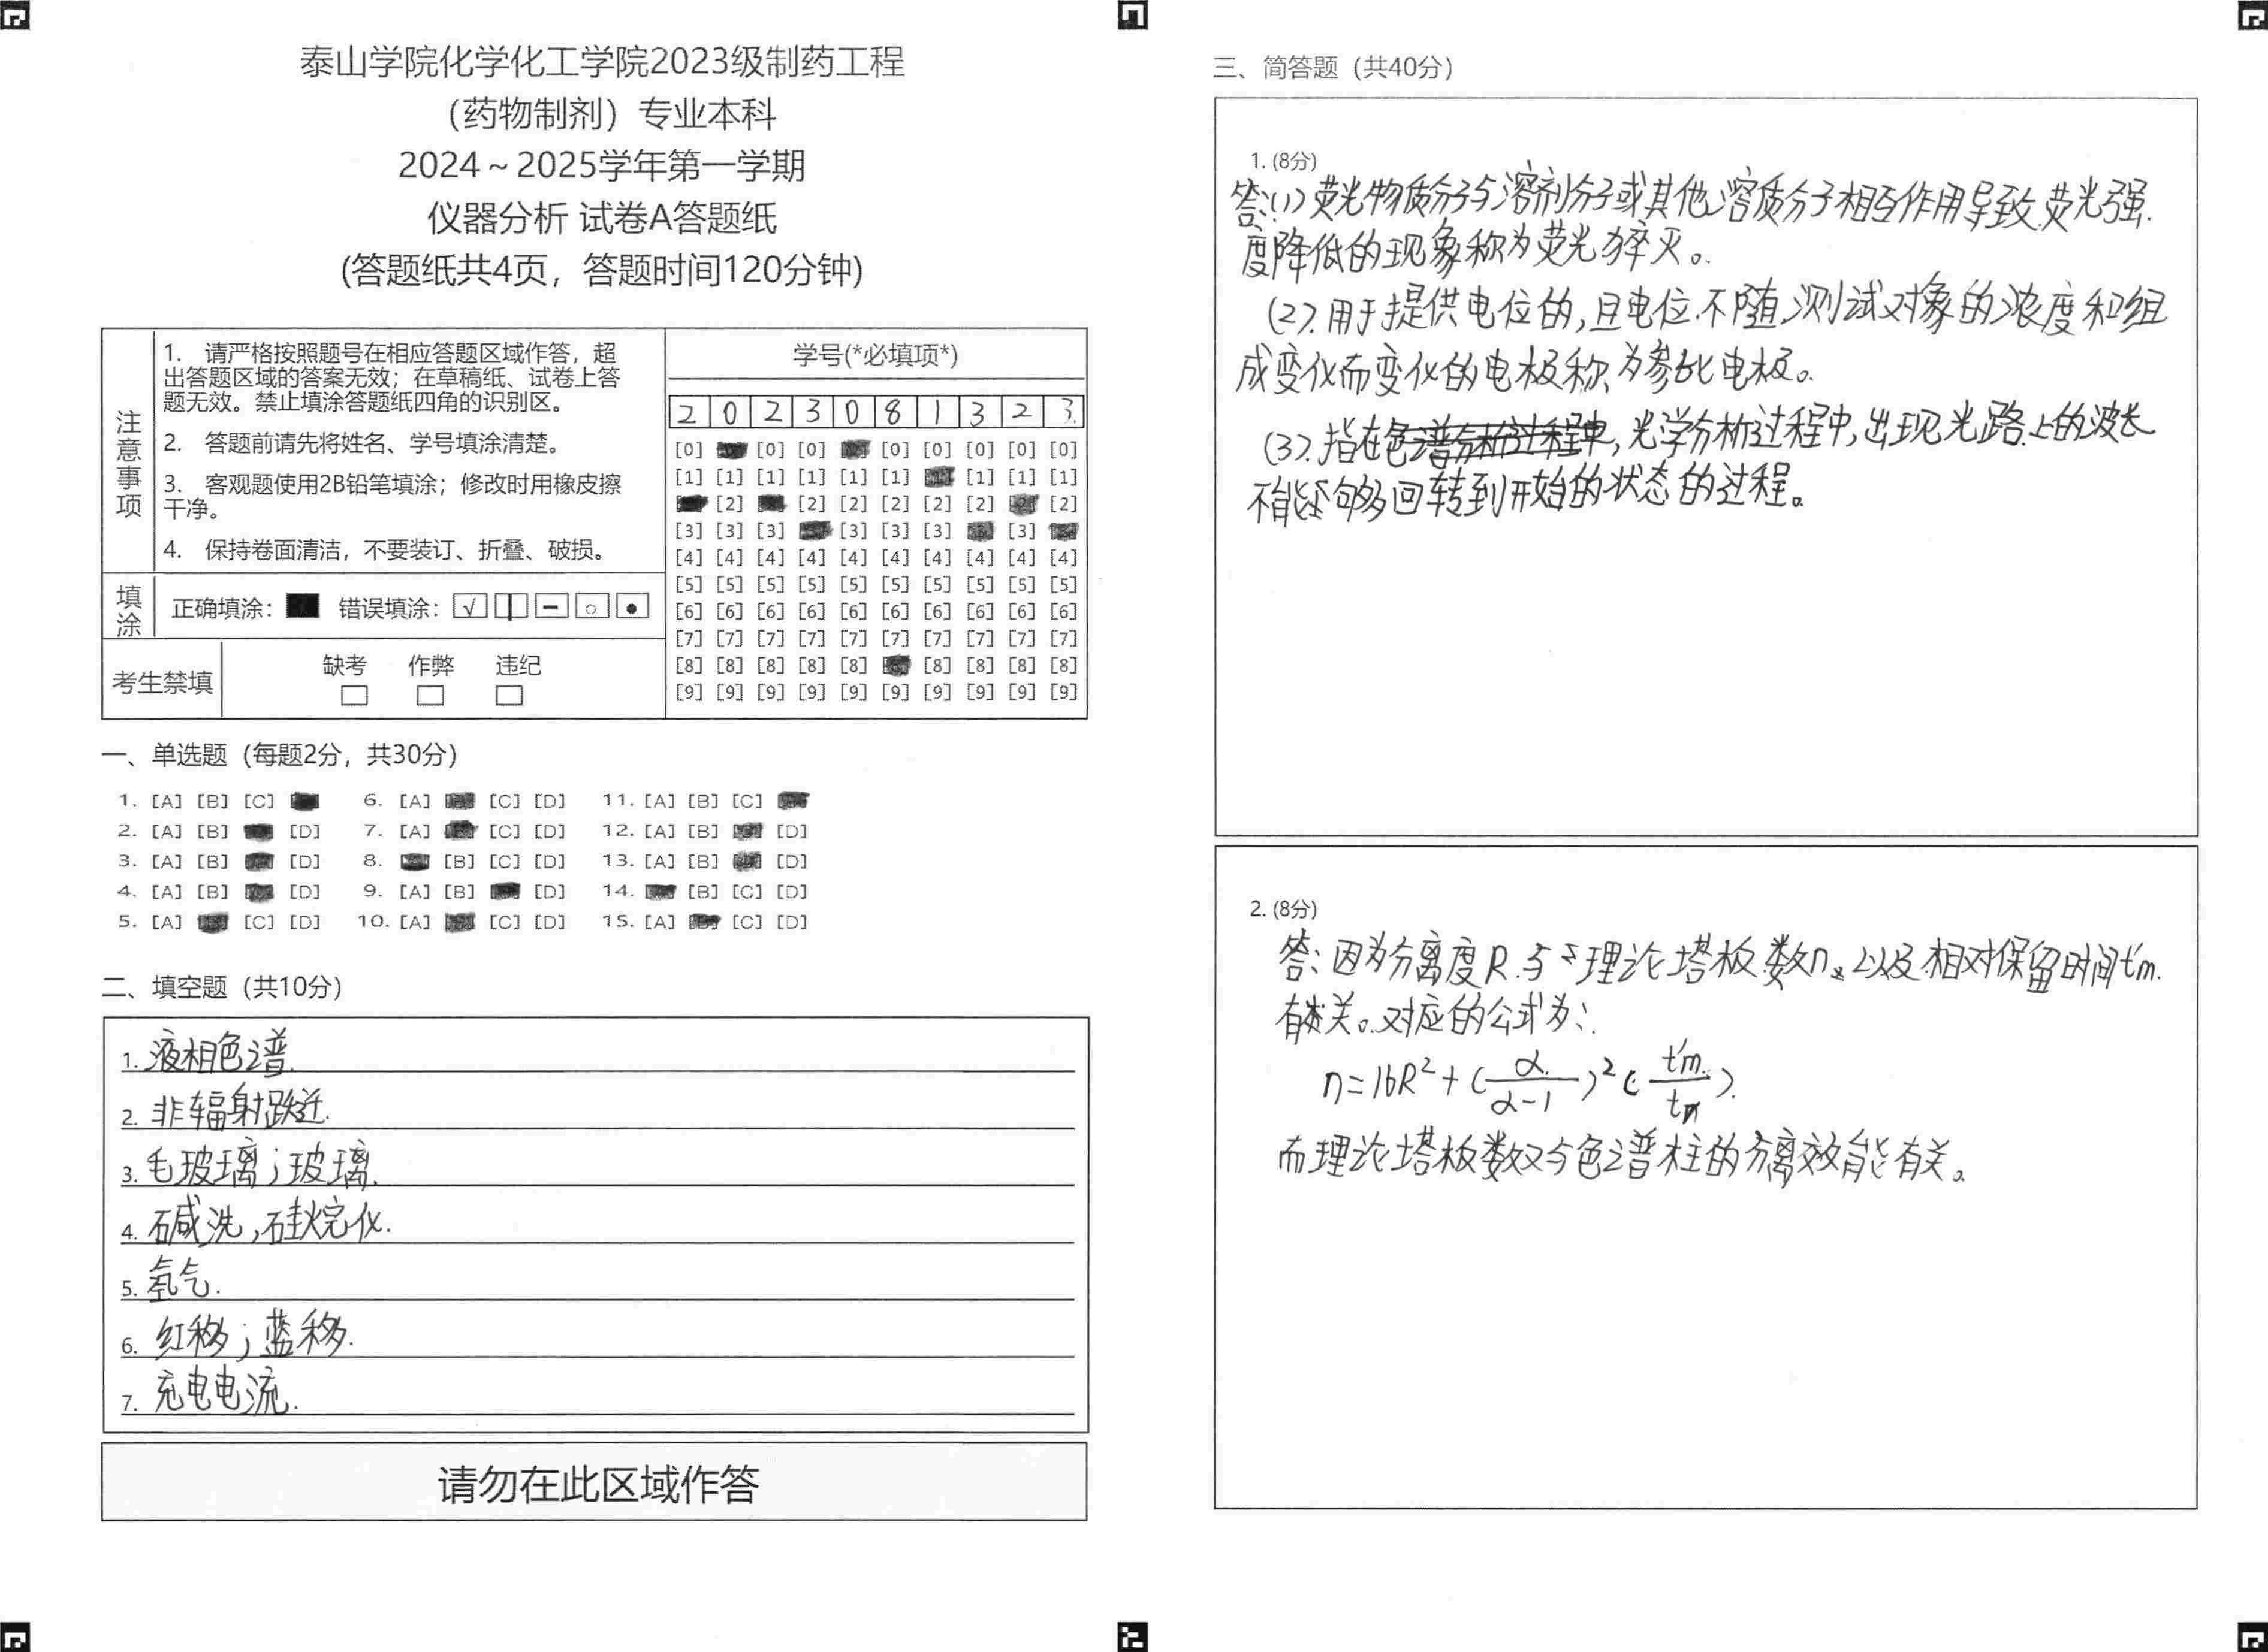 泰山学院化学化工学院2023级制药工程
（药物制剂）专业本科
2024～2025学年第一学期
仪器分析 试卷A答题纸
(答题纸共4页，答题时间120分钟)
注意事项
1. 请严格按照题号在相应答题区域作答，超
出答题区域的答案无效；在草稿纸、试卷上答
题无效。禁止填涂答题纸四角的识别区。
2. 答题前请先将姓名、学号填涂清楚。
3. 客观题使用2B铅笔填涂；修改时用橡皮擦
干净。
4. 保持卷面清洁，不要装订、折叠、破损。
填涂
正确填涂： 错误填涂：
考生禁填
缺考 作弊 违纪
学号(*必填项*)
2 0 2 3 0 8 1 3 2 3
[0] [0] [0] [0] [0] [0] [0] [0]
[1] [1] [1] [1] [1] [1] [1] [1] [1]
[2] [2] [2] [2] [2] [2] [2]
[3] [3] [3] [3] [3] [3] [3]
[4] [4] [4] [4] [4] [4] [4] [4] [4] [4]
[5] [5] [5] [5] [5] [5] [5] [5] [5] [5]
[6] [6] [6] [6] [6] [6] [6] [6] [6] [6]
[7] [7] [7] [7] [7] [7] [7] [7] [7] [7]
[8] [8] [8] [8] [8] [8] [8] [8] [8]
[9] [9] [9] [9] [9] [9] [9] [9] [9] [9]
一、单选题（每题2分，共30分）
1. [A] [B] [C] 6. [A] [C] [D] 11. [A] [B] [C]
2. [A] [B] [D] 7. [A] [C] [D] 12. [A] [B] [D]
3. [A] [B] [D] 8. [B] [C] [D] 13. [A] [B] [D]
4. [A] [B] [D] 9. [A] [B] [D] 14. [B] [C] [D]
5. [A] [C] [D] 10. [A] [C] [D] 15. [A] [C] [D]
二、填空题（共10分）
1. 液相色谱.
2. 非辐射跃迁.
3. 毛玻璃；玻璃.
4. 碱洗，硅烷化.
5. 氢气.
6. 红移；蓝移.
7. 充电电流.
请勿在此区域作答
三、简答题（共40分）
1. (8分)
答:(1)荧光物质分子与溶剂分子或其他溶质分子相互作用导致荧光强
度降低的现象称为荧光猝灭。
(2).用于提供电位的,且电位不随测试对象的浓度和组
成变化而变化的电极称为参比电极。
(3).指在色谱分析过程中,光学分析过程中,出现光路上的波长
不能够回转到开始的状态的过程。
2. (8分)
答:因为分离度R与理论塔板数n以及相对保留时间t'm
有关。对应的公式为:
n=16R²+(α/α-1)²(t'm/tm).
而理论塔板数又与色谱柱的分离效能有关。